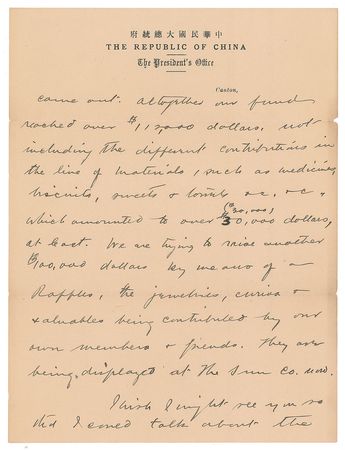 府統總大國民華中
THE REPUBLIC OF CHINA
The President's Office
Canton,
came out. Altogether our fund
reached over $112,000 dollars, not
including the different contributions in
the line of materials, such as medicines,
biscuits, sweets & &c, &c,
which amounted to over ($30,000)
30,000 dollars,
at least. We are trying to raise another
$100,000 dollars by means of a
Raffles, the jewelries, curios &
valuables being contributed by our
own members & friends. They are
being displayed at The Sun Co. now.
I wish I might see you so
that I could talk about the